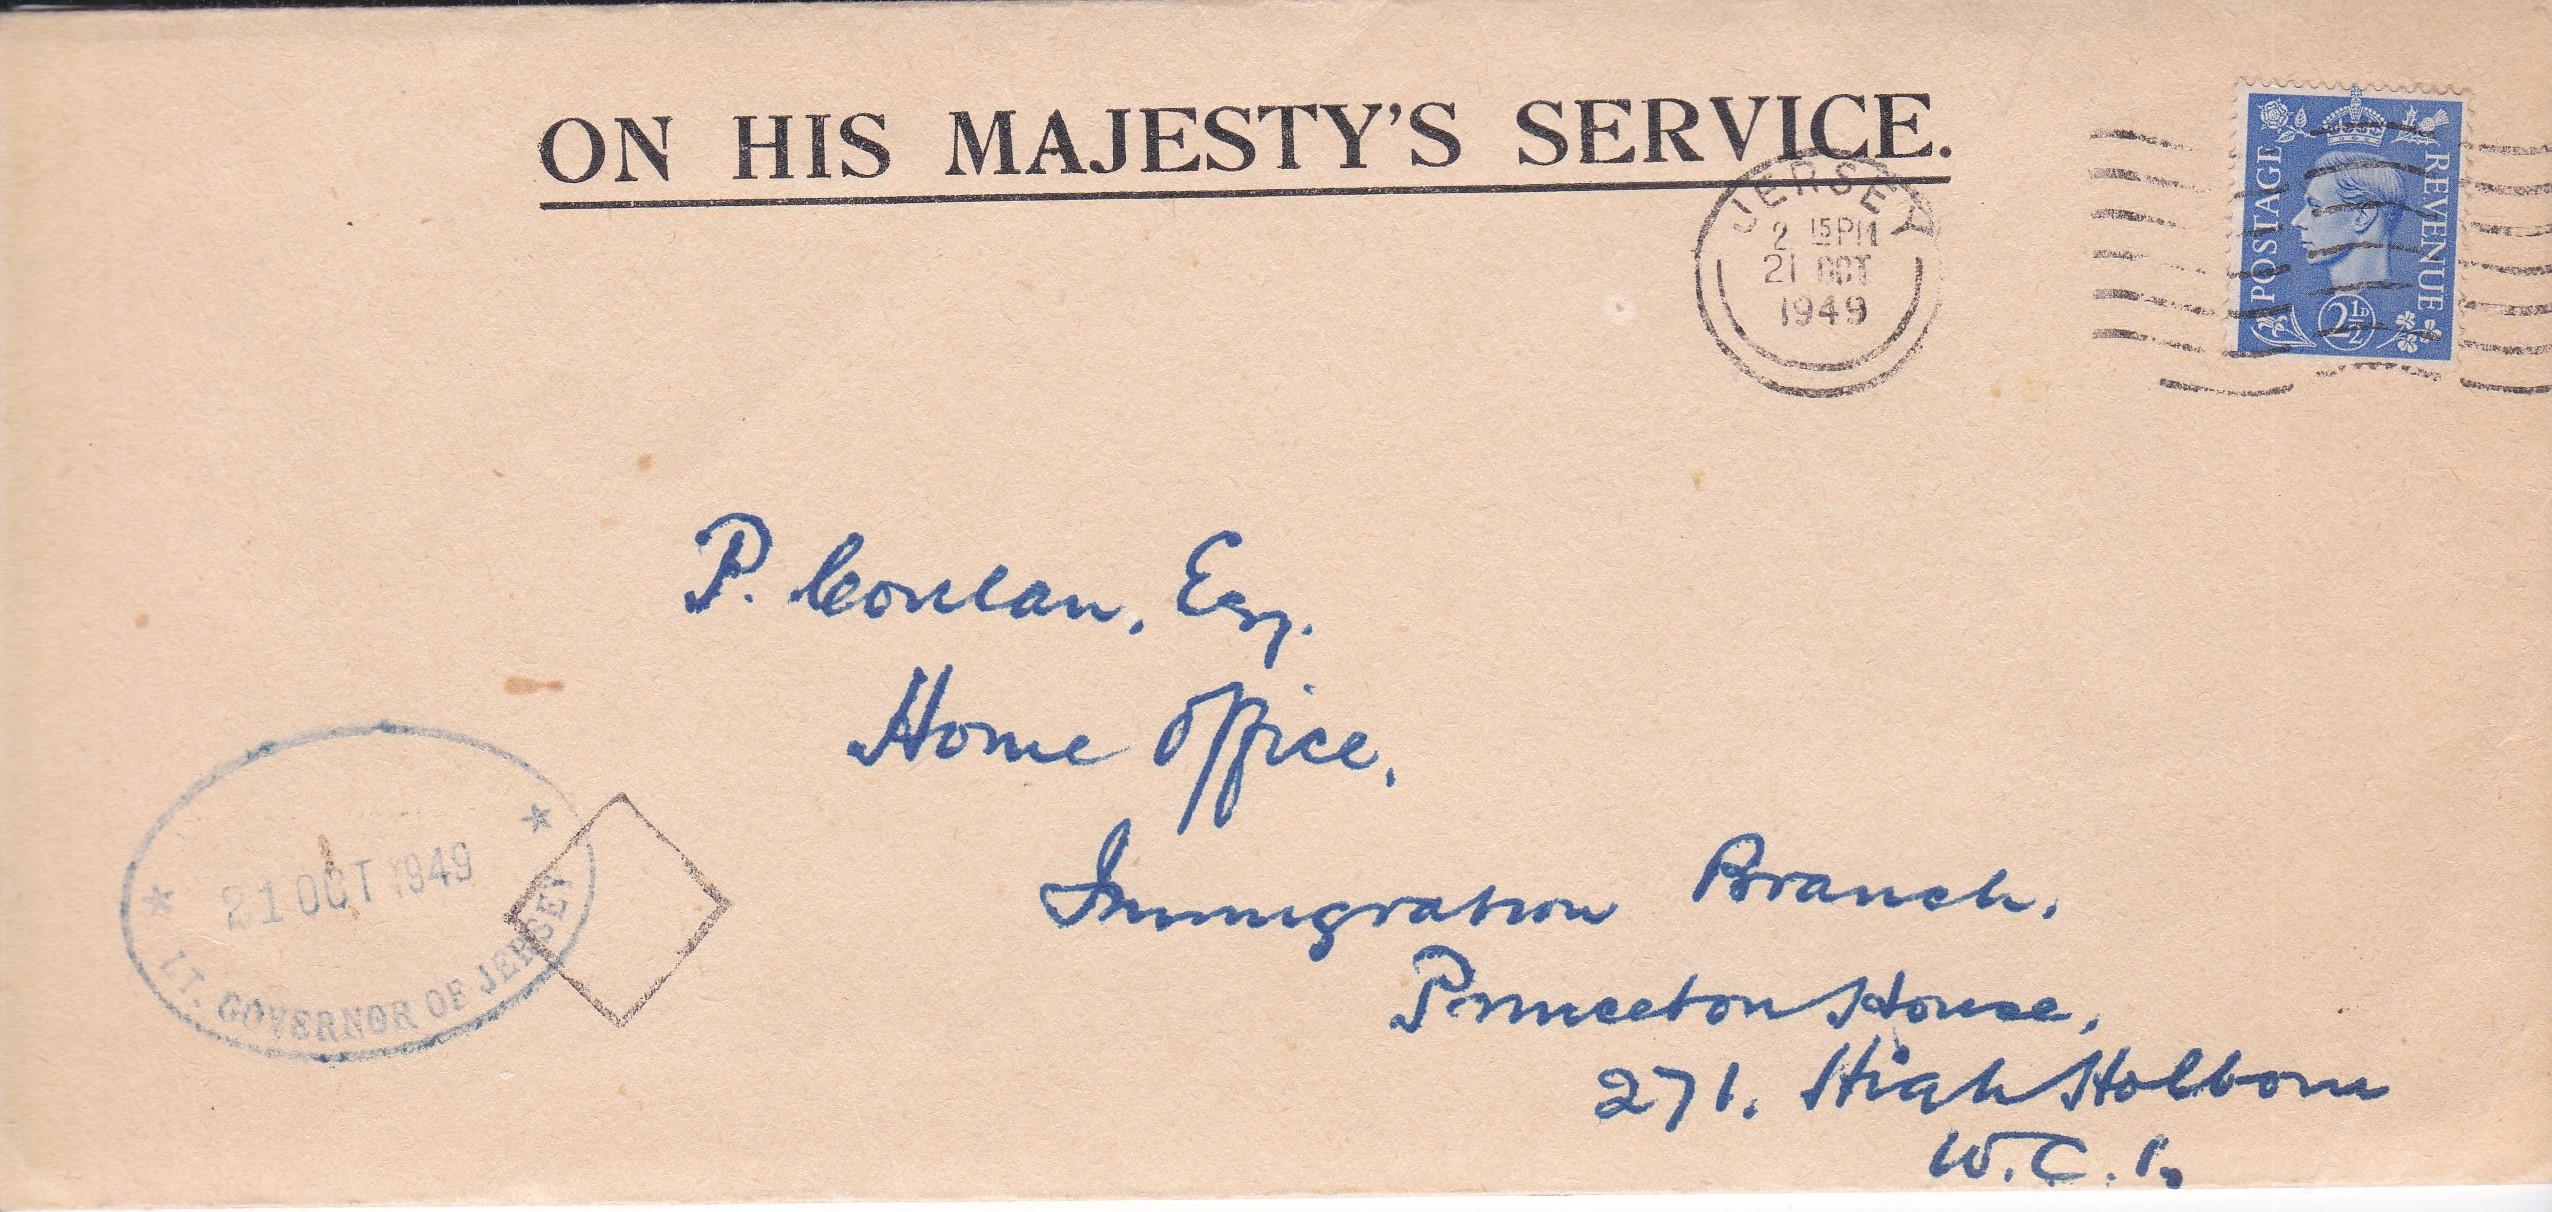 ON HIS MAJESTY'S SERVICE.
JERSEY
2 15 PM
21 OCT
1949
POSTAGE
REVENUE
2½D
P. Conlan, Esq.
Home Office,
Immigration Branch,
Princeton House,
271, High Holborn
W.C.1.
21 OCT 1949
LT. GOVERNOR OF JERSEY